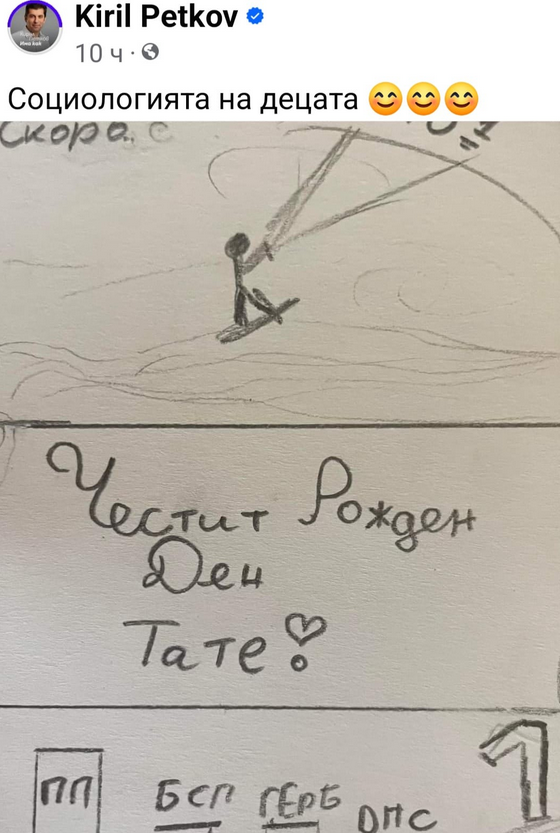 Kiril Petkov
10 ч
Социологията на децата 😊😊😊
Скоро.
Честит Рожден
Ден
Тате!
1
ПП
БСП ГЕРБ
ДПС